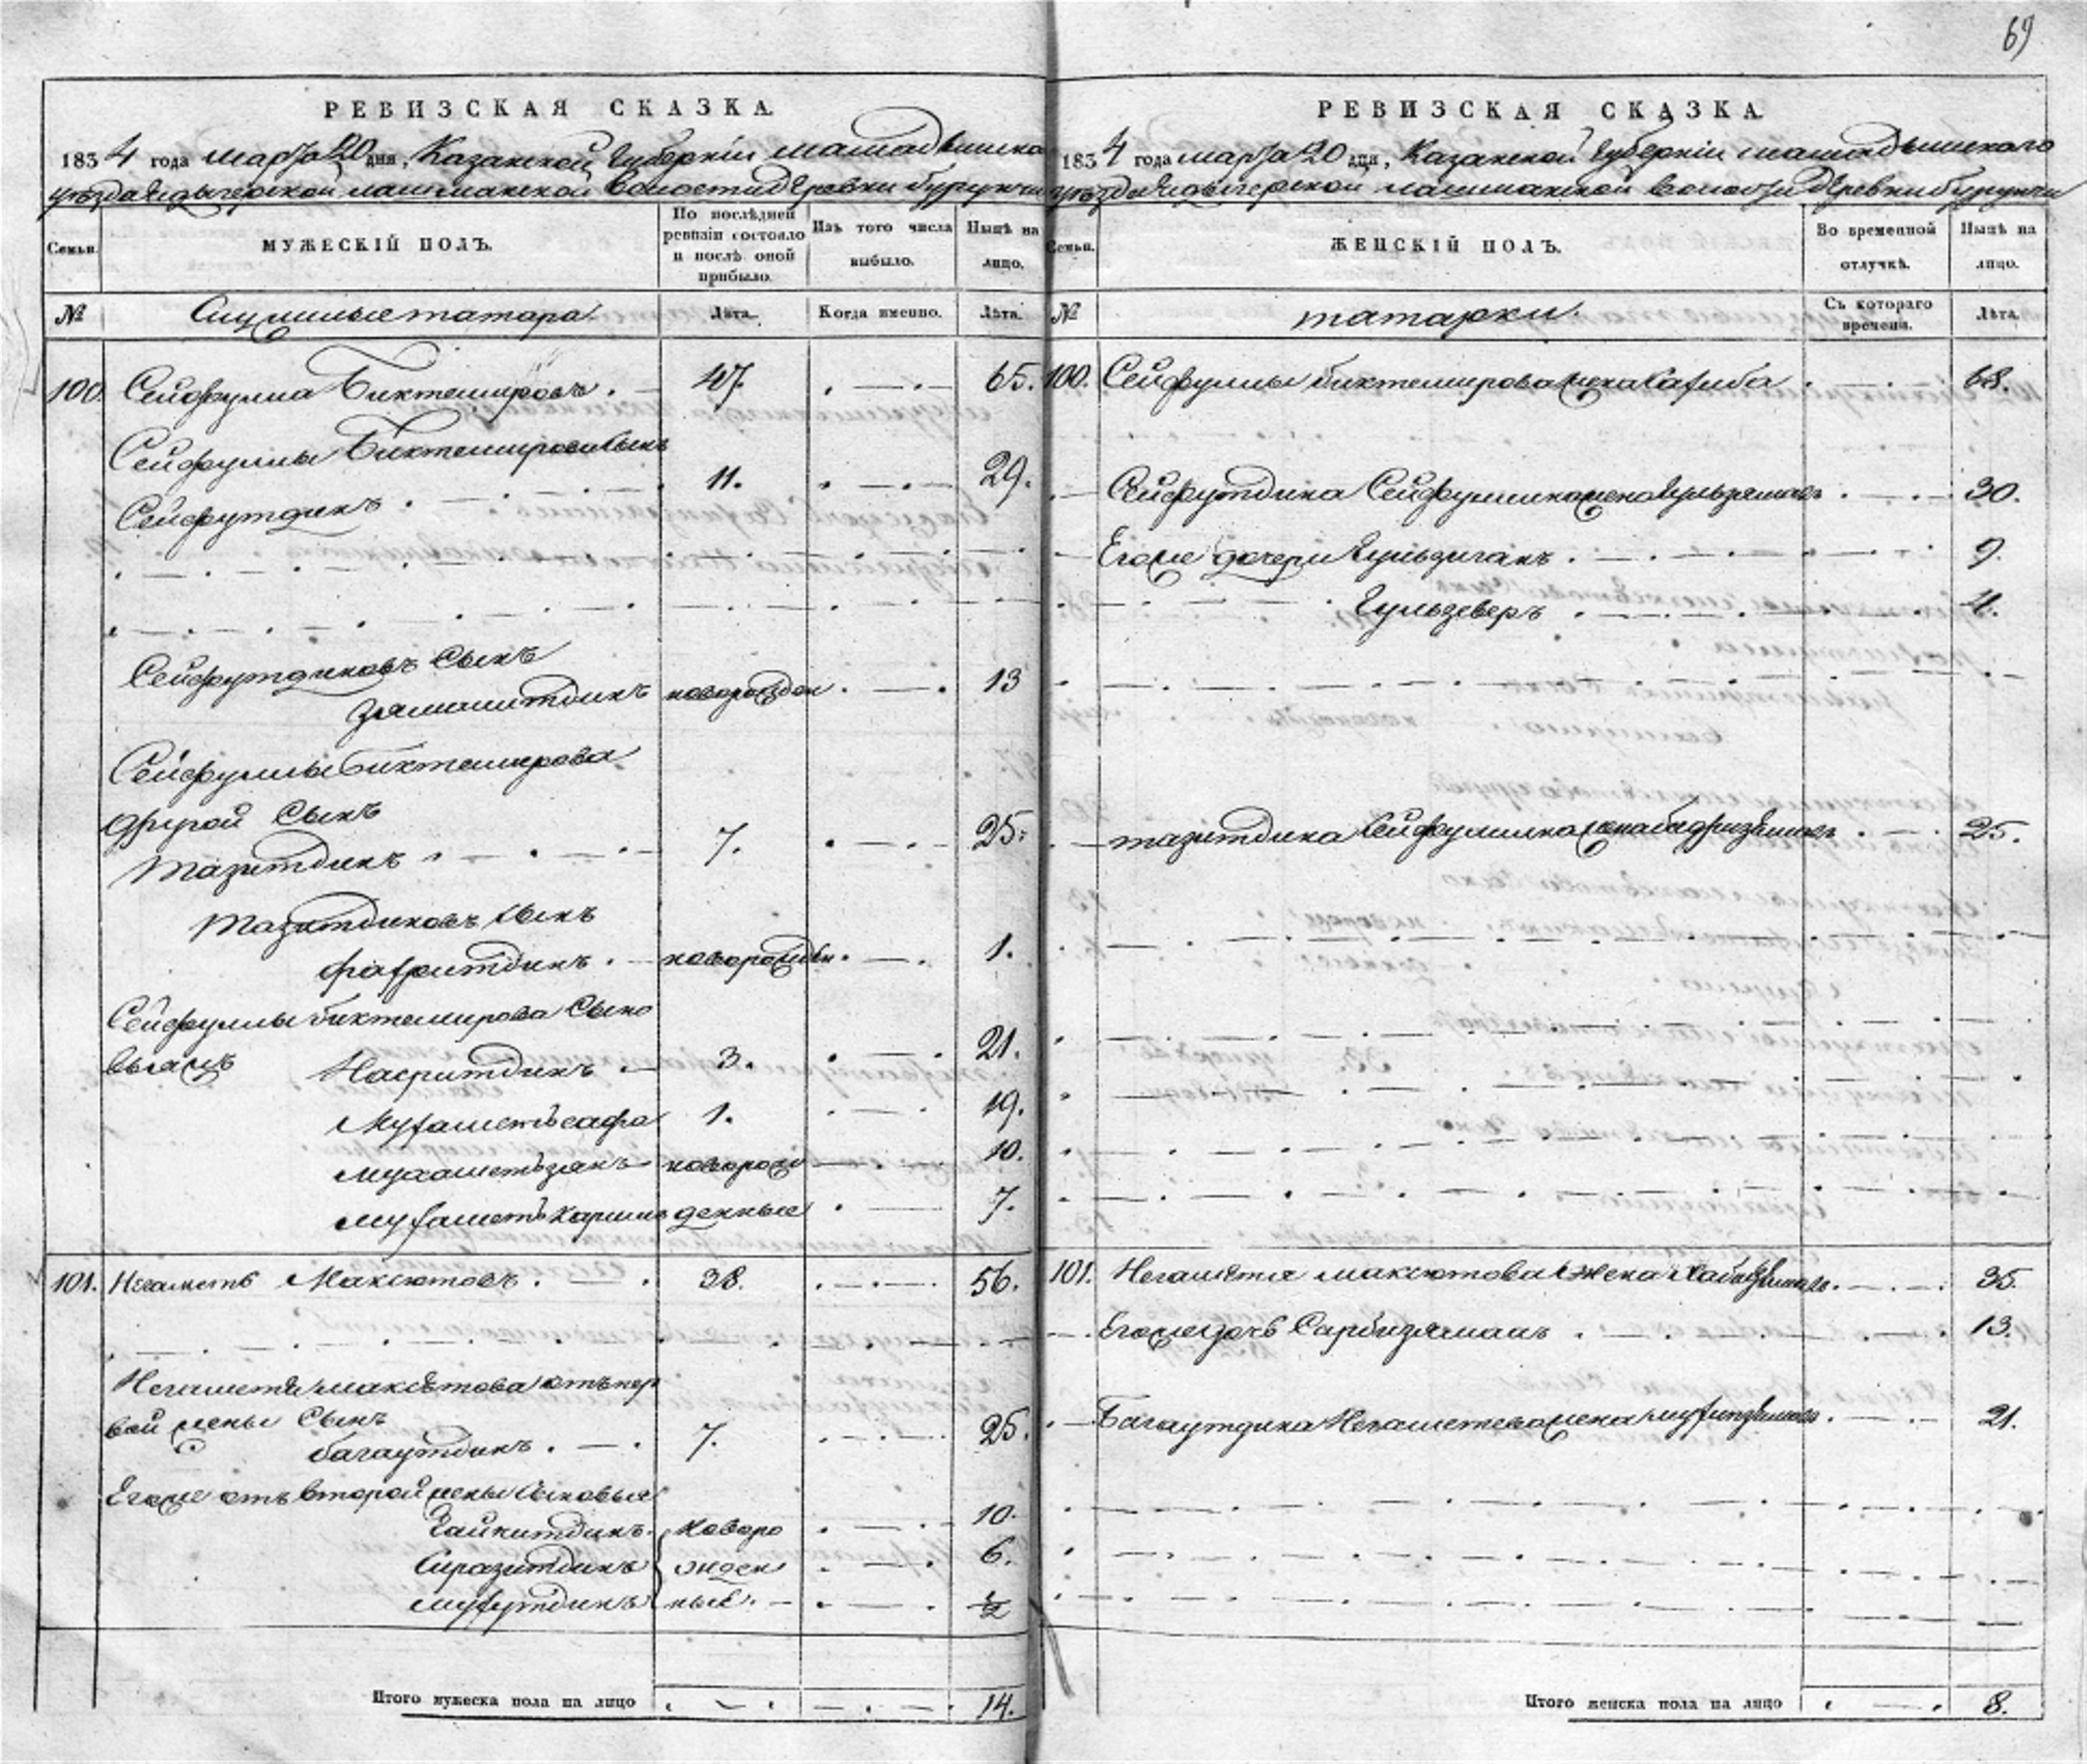 69
РЕВИЗСКАЯ СКАЗКА.
1834 года марта 20 дня, Казанской Губерніи мамадышска
уѣзда Ядыгерской лашманской волости деревни бурунчи
Семьи.
МУЖЕСКІЙ ПОЛЪ.
По послѣдней ревизіи состояло и послѣ оной прибыло.
Изъ того числа выбыло.
Нынѣ на лицо.
№
Служилые татара.
Лѣта.
Когда именно.
Лѣта.
100. Сейфулла Биктемировъ. 47. 65.
Сейфуллы Биктемирова сынъ
Сейфутдинъ 11. 29.
Сейфутдиновъ сынъ
Замалитдинъ новорожден 13
Сейфуллы биктемирова
другой сынъ
Тазитдинъ 7. 25.
Тазитдиновъ сынъ
фахритдинъ новорожден. 1.
Сейфуллы биктемирова сыно
вьямъ Насритдинъ 3. 21.
Мухаметьсафа 1. 19.
мухаметьзянъ новорож 10.
мухаметькаримъ денные 7.
101. Негаметь Максютовъ. 38. 56.
Негаметя максютова отъ пер
вой жены сынъ
багаутдинъ. 7. 25.
Его же отъ второй жены сыновья
Гайнитдинъ новоро 10.
Сиразитдинъ жден 6.
мухутдинъ ные. ½
Итого мужеска пола на лицо 14.
РЕВИЗСКАЯ СКАЗКА.
1834 года марта 20 дня, Казанской губерніи мамадышскаго
уѣзда Ядыгерской лашманской волости деревни бурунчи
Семьи.
ЖЕНСКІЙ ПОЛЪ.
Во временной отлучкѣ.
Нынѣ на лицо.
№
татарки.
Съ котораго времени.
Лѣта.
100. Сейфуллы биктемирова жена Хабиба 68.
Сейфутдина Сейфуллина жена 30.
Его же дочери Гульзиганъ 9.
Гульзеверъ 4.
тазитдина Сейфуллина жена бадризямал 25.
101. Негаметя максютова жена 35.
Его же дочь Сарбизямалъ 13.
Багаутдина Негаметева жена 21.
Итого женска пола на лицо 8.